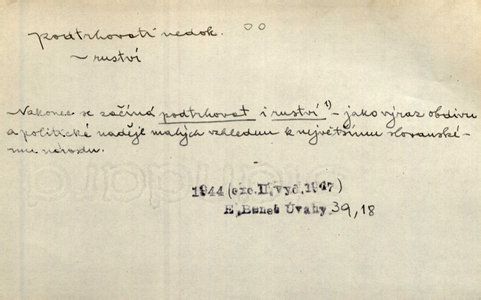 podtrhovati nedok. oo
~ ruství
Nakonec se začíná podtrhovat i ruství ¹) - jako výraz obdivu
a politické naděje malých vzhledem k největšímu slovanské-
mu národu.
1944 (exc. II. vyd. 1947)
E. Beneš Úvahy 39, 18